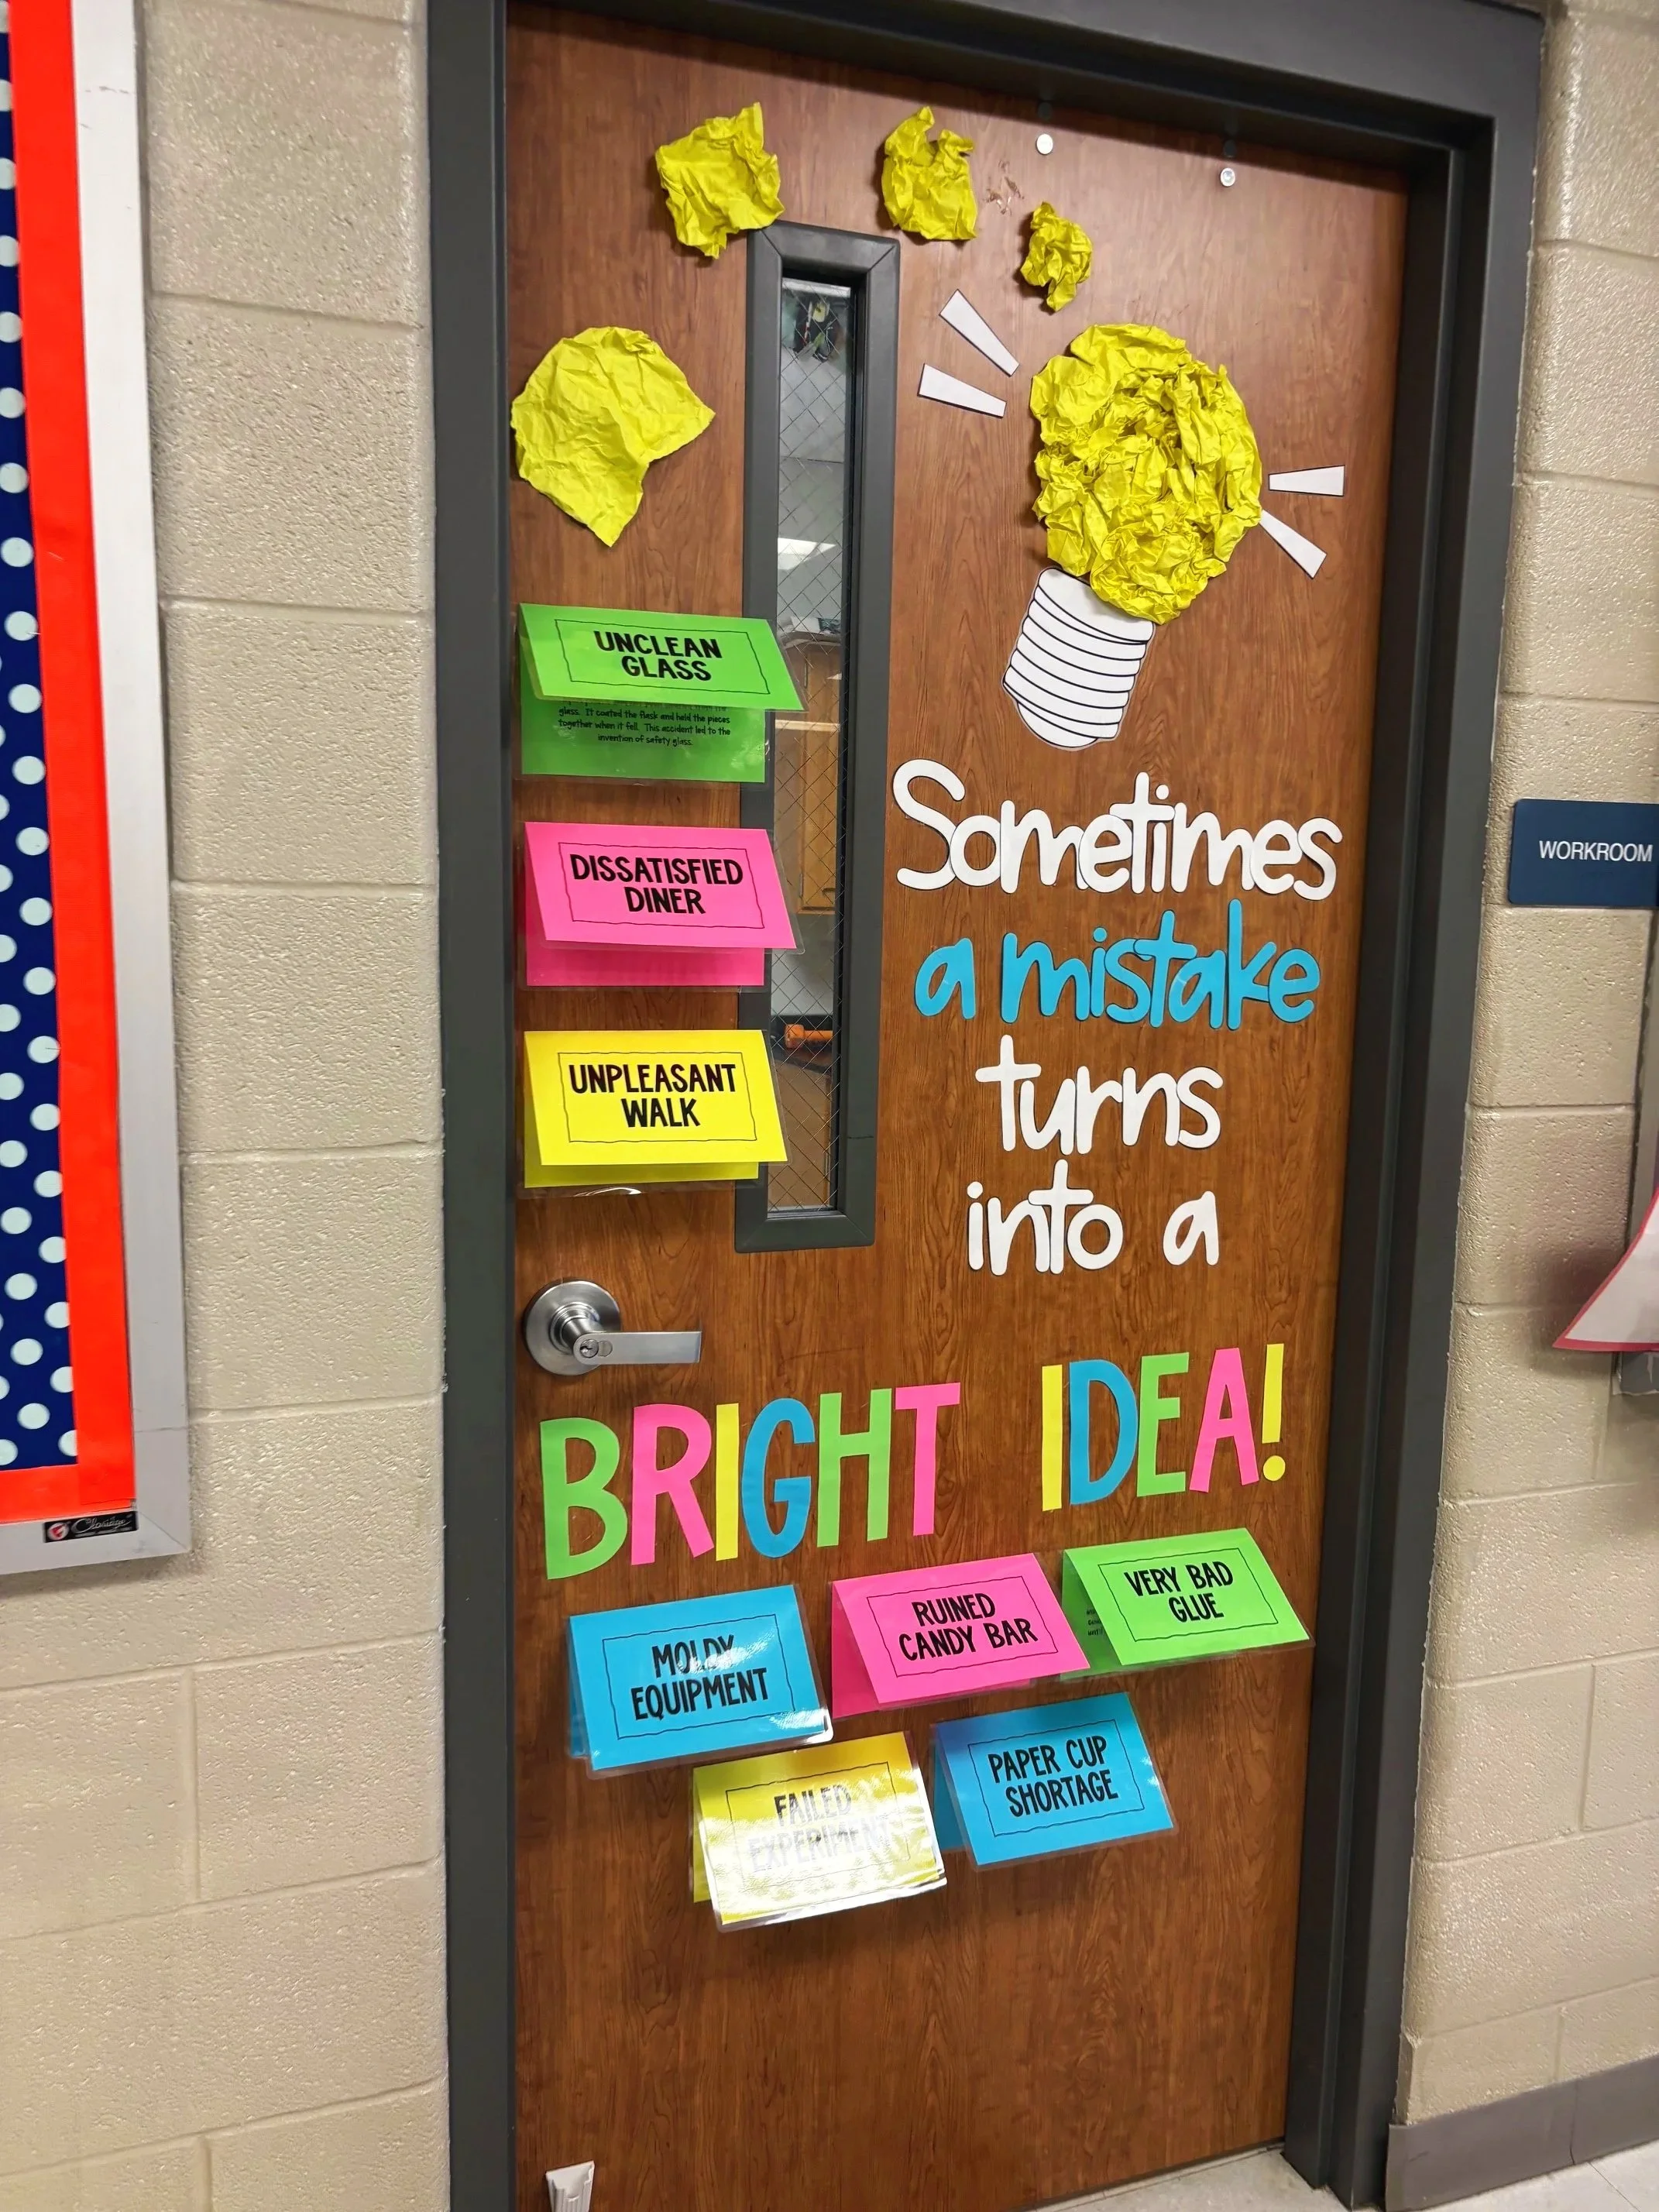 UNCLEAN
GLASS
glass. It coated the flask and held the pieces
together when it fell. This accident led to the
invention of safety glass.
DISSATISFIED
DINER
UNPLEASANT
WALK
Sometimes
a mistake
turns
into a
BRIGHT IDEA!
MOLDY
EQUIPMENT
RUINED
CANDY BAR
VERY BAD
GLUE
FAILED
EXPERIMENT
PAPER CUP
SHORTAGE
WORKROOM
Claridge